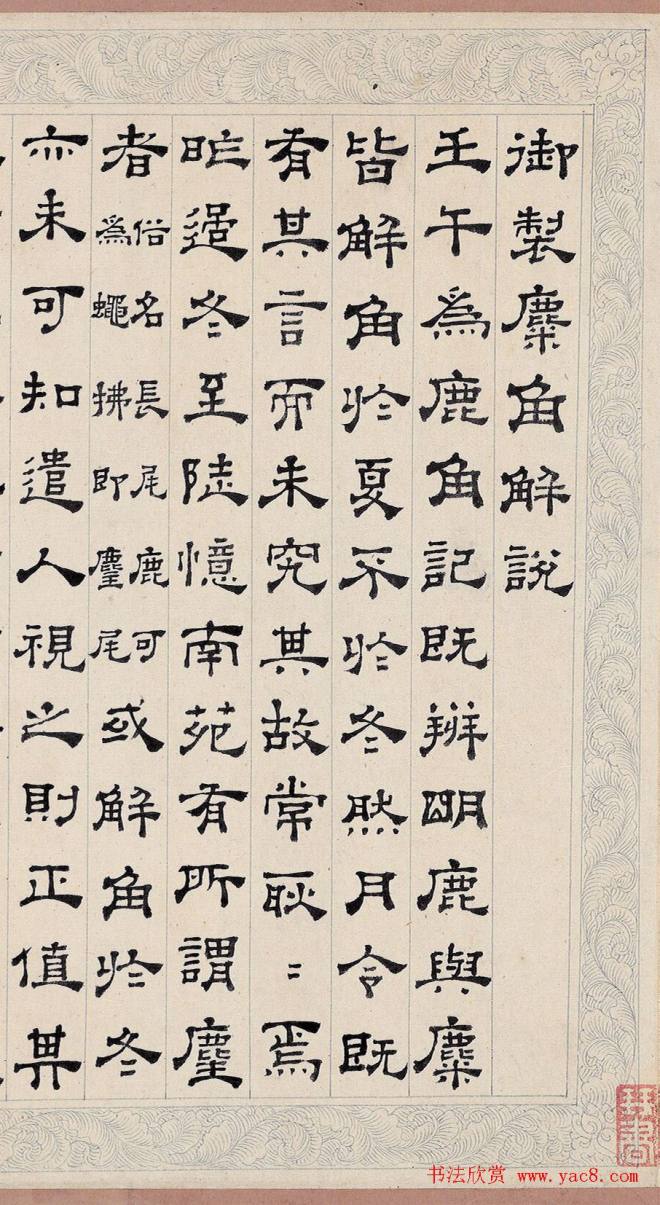 御製麋角解說
壬午爲鹿角記既辨明鹿與麋
皆解角於夏不於冬然月令既
有其言而未究其故常耿〻焉
昨過冬至陡憶南苑有所謂麈
者俗名長尾鹿可爲蠅拂即麈尾或解角於冬
亦未可知遣人視之則正值其
书法欣赏 www.yac8.com